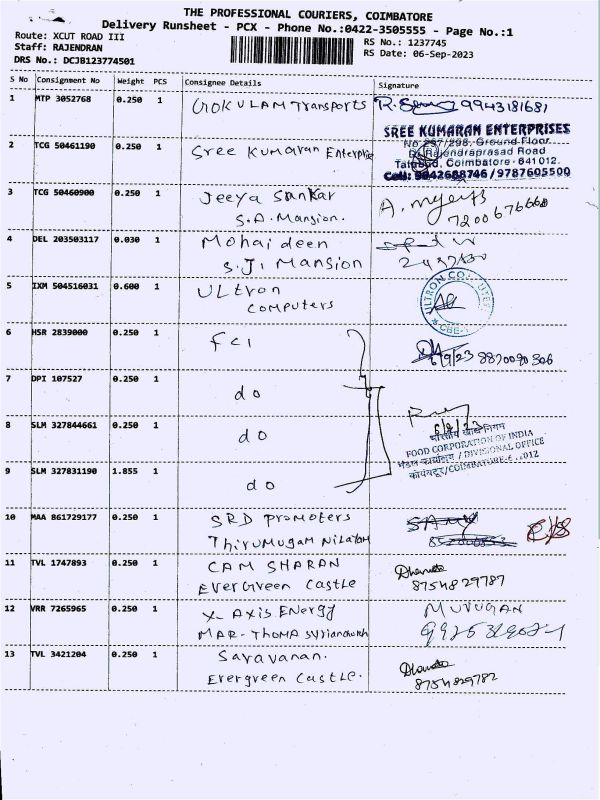 THE PROFESSIONAL COURIERS, COIMBATORE
Delivery Runsheet - PCX - Phone No.:0422-3505555 - Page No.:1
Route: XCUT ROAD III
Staff: RAJENDRAN
DRS No.: DCJB123774501
RS No.: 1237745
RS Date: 06-Sep-2023
S No Consignment No Weight PCS Consignee Details Signature
1 MTP 3052768 0.250 1 GOKULAM Transports 9943181681
SREE KUMARAN ENTERPRISES
No.297/298, Ground Floor,
Dr.Rajendraprasad Road
Tatabad, Coimbatore - 641 012.
Cell: 9042688746 / 9787605500
2 TCG 50461190 0.250 1 Sree Kumaran Enterprise
3 TCG 50460900 0.250 1 Jeeya Sankar
S.A. Mansion.
7200676668
4 DEL 203503117 0.030 1 Mohaideen
S.J. Mansion
5 IXM 504516031 0.600 1 ULtron
Computers
ULTRON COMPUTERS
CBE
6 HSR 2839000 0.250 1 fci
7 DPI 107527 0.250 1 do
8 SLM 327844661 0.250 1 do
भारतीय खाद्य निगम
FOOD CORPORATION OF INDIA
मंडल कार्यालय / DIVISIONAL OFFICE
9 SLM 327831190 1.855 1 do
10 MAA 861729177 0.250 1 SRD Promoters
Thirumugam Nilayam
11 TVL 1747893 0.250 1 CAM SHARAN
EverGreen Castle
8754829787
12 VRR 7265965 0.250 1 X-Axis Energy
MAR-Thoma Syrianchurch
MURUGAN
13 TVL 3421204 0.250 1 Saravanan.
Evergreen Castle.
8754829782